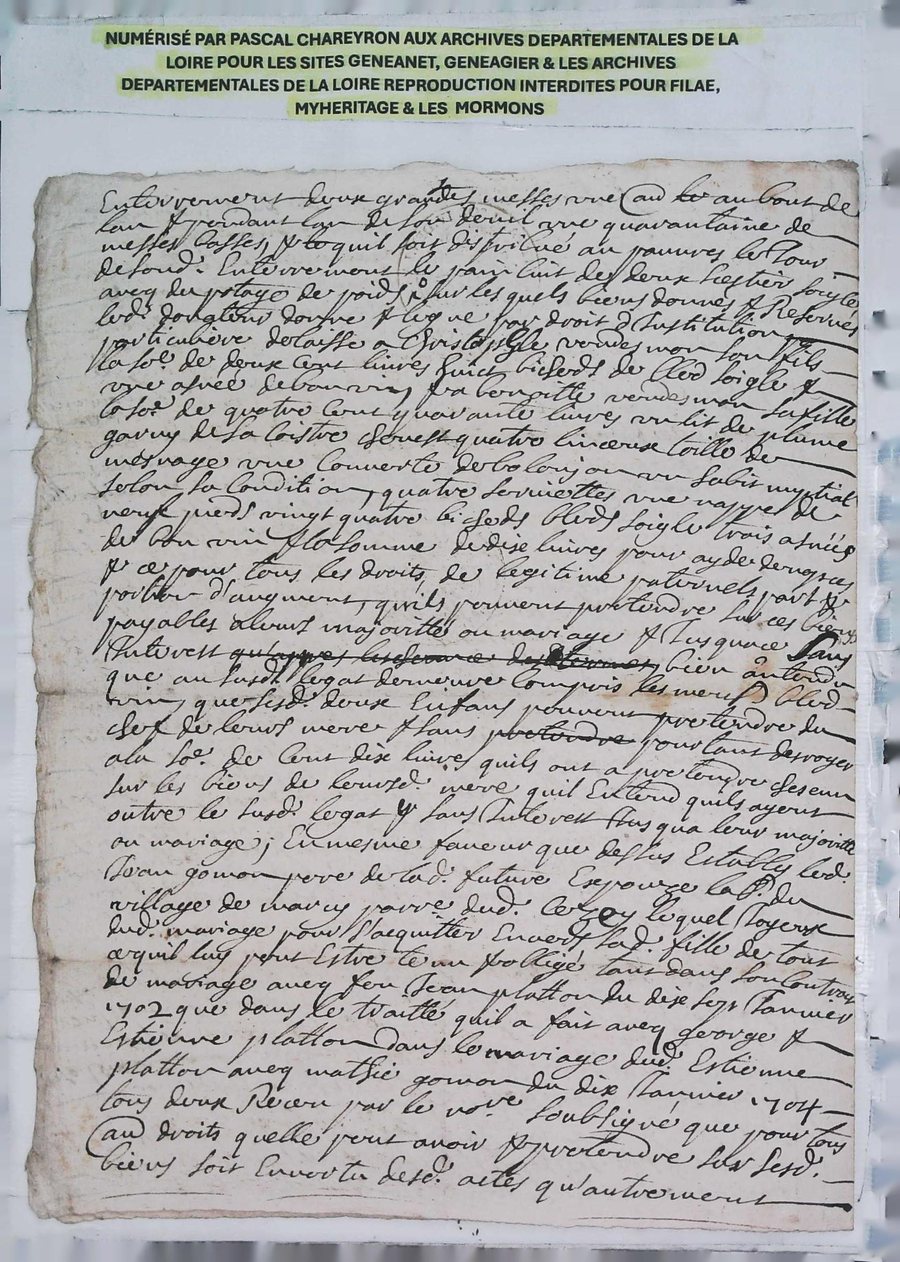 NUMÉRISÉ PAR PASCAL CHAREYRON AUX ARCHIVES DEPARTEMENTALES DE LA
LOIRE POUR LES SITES GENEANET, GENEAGIER & LES ARCHIVES
DEPARTEMENTALES DE LA LOIRE REPRODUCTION INTERDITES POUR FILAE,
MYHERITAGE & LES MORMONS
Enterrement deux grandes messes une au bout de
lan & pendant lan de son deuil une quarantaine de
messes basses, & quil soit distribué au pauvres le Jour
de sond. Enterrement le pain cuit de deux sestier soigle
aveq du potage de poids, sur les quels biens donnés & Reservés
led. donateur donne & legue par droit d'Institution
particuliere delaisse a Christophle son fils
la so.e de deux cent livres huict bicheds de bled soigle &
une asnée de bon vin, sa fille
la so.e de quatre cent quarante livres un lit de plume
garny de sa quatre linceux toille de
mesnage une Couverte de un habit nuptial
selon sa Condition, quatre serviettes une nappe de
neuf pieds vingt quatre bicheds bleds soigle trois asnées
de bon vin & la somme de dix livres pour ayde de nopces
& ce pour tous les droits de legitime paternels part &
portion d'augment, quils peuvent pretendre sur ces biens
payables a leurs majorité ou mariage & Jusqua ce sans
Interest bien antendu
que au susd. legat demeure Compris les bled
vin, que sesd. deux Enfans peuvent pretendre du
chef de leurs mere & sans pretendre pourtant desroger
a la so.e de Cent dix livres quils ont a pretendre
sur les biens de leursd. mere quil Entend quils ayent
outre le susd. legat & sans Interest Jusqua leur majorité
ou mariage; En mesme faveur que dessus Estably led.
Jean gomon pere de lad. future Espouze lab. du
village de marcy parre dud. Cezay lequel
dud. mariage pour s'acquitter Envers sad. fille de tout
cequil luy peut Estre tenu & obligé tant dans son Contrat
de mariage aveq feu Jean platton du dix sept Janvier
1702 que dans le traitté quil a fait aveq george &
Estienne platton dans le mariage dud. Estienne
platton aveq mathie gomon du dix Janvier 1704
tous deux Receu par le no.re soubsigné que pour tous
au droits quelle peut avoir & pretendre sur sesd.
biens soit En vertu desd. actes qu'autrement